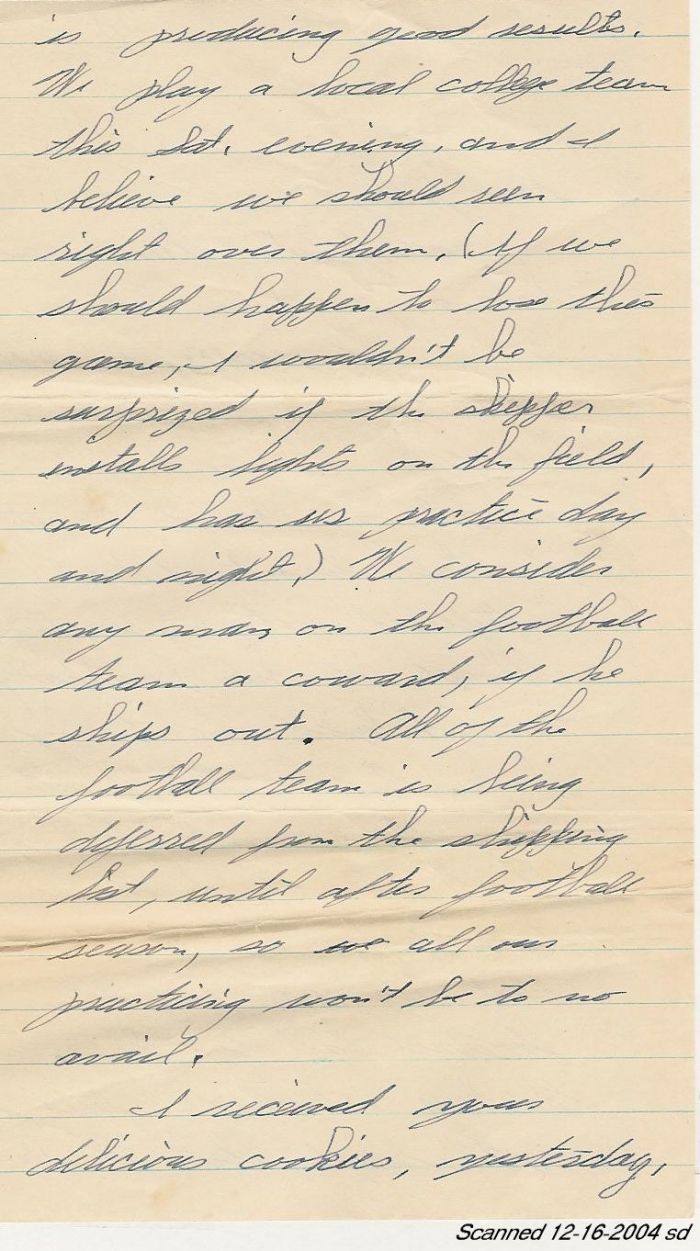 is producing good results.
We play a local college team
this Sat. evening, and I
believe we should run
right over them. (If we
should happen to lose this
game, I wouldn't be
surprized if the skipper
installs lights on the field,
and has us practice day
and night.) We consider
any man on the football
team a coward, if he
ships out. All of the
football team is being
deferred from the shipping
list, until after football
season, so we all our
practicing won't be to no
avail.
I received your
delicious cookies, yesterday,
Scanned 12-16-2004 sd